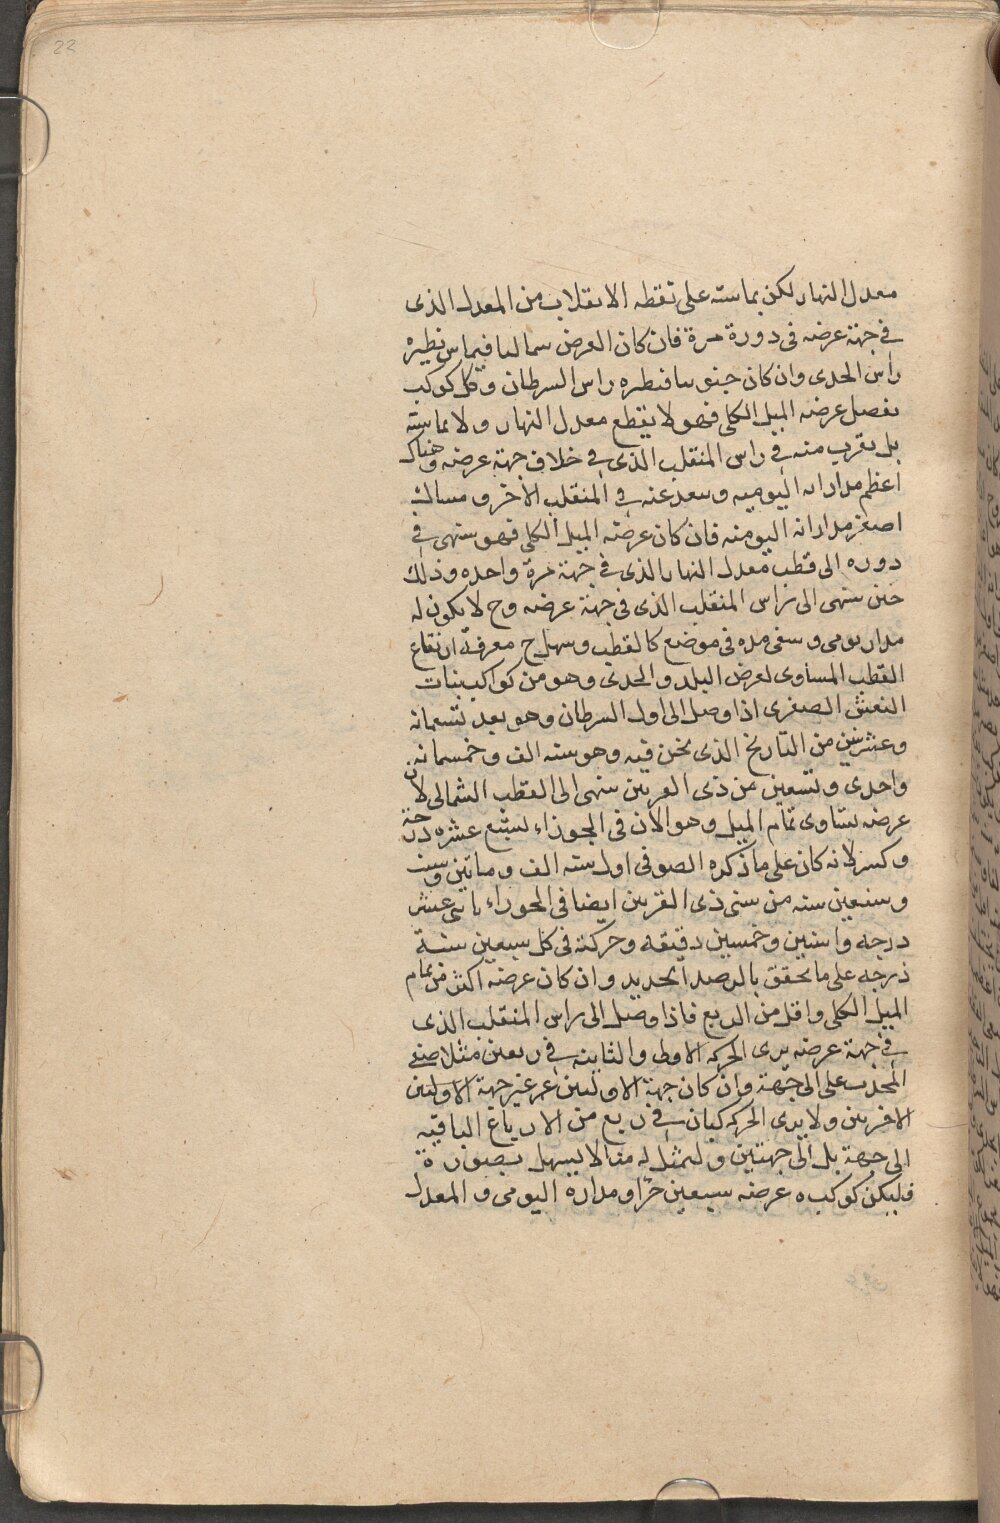 22
معدل النهار لكن يماسته على نقطه الانقلاب من المعدل الذى
فى جهة عرضه فى دورة مرة فان كان العرض سماليا فيماس نظيره
راس الحدى وان كان جنوبيا فنظيره راس السرطان وكل كوكب
يفصل عرضه الميل الكلى فهو لا يقطع معدل النهار ولا يماسته
بل يقرب منه فى راس المنقلب الذى فى خلاف جهة عرضه وهناك
اعظم مداراته اليوميه وسعد عنه فى المنقلب الاخر و
اصغر مداراته اليوميه فان كان عرضه الميل الكلى فهو ينتهى فى
دوره الى قطب معدل النهار الذى فى جهته مرة واحده وذلك
حين ينتهى الى راس المنقلب الذى فى جهة عرضه وح لا يكون له
مدار يومى وسقى مده فى موضع كالقطب وسهل ح معرفة ارتفاع
القطب المساوى لعرض البلد والجدى وهو من كواكب بنات
النعش الصغرى اذا وصل الى اول السرطان وهو بعد تسعمائه
وعشرين من التاريخ الذى نحن فيه وهو سته الف وخمسمائه
واحدى وتسعين من ذى القرنين ينتهى الى القطب الشمالى لان
عرضه يساوى تمام الميل وهو الان فى الجوزاء لسبع عشره درجة
وكسر لانه كان على ما ذكره الصوفى اول سته الف ومائتين وست
وسبعين سنه من سنى ذى القرنين ايضا فى الجوزاء باثنى عشر
درجه واثنين وخمسين دقيقه وحركته فى كل سبعين سنة
درجه على ما تحقق بالرصد الجديد وان كان عرضه اكثر من تمام
الميل الكلى واقل من الربع فاذا وصل الى راس المنقلب الذى
فى جهة عرضه يرى الحركه الاولى والثانيه فى ربعين مثلا صفى
المجذب على الى جهة وان كان جهة الاوليين غير جهة الاوليين
الاخريين ولا يرى الحركه كنان فى ربع من الارباع الباقيه
الى جهة بل الى جهتين ولنمثل له مثالا ليسهل تصوره
فليكن كوكب ه عرضه سبعين جزا ومداره اليومى و المعدل